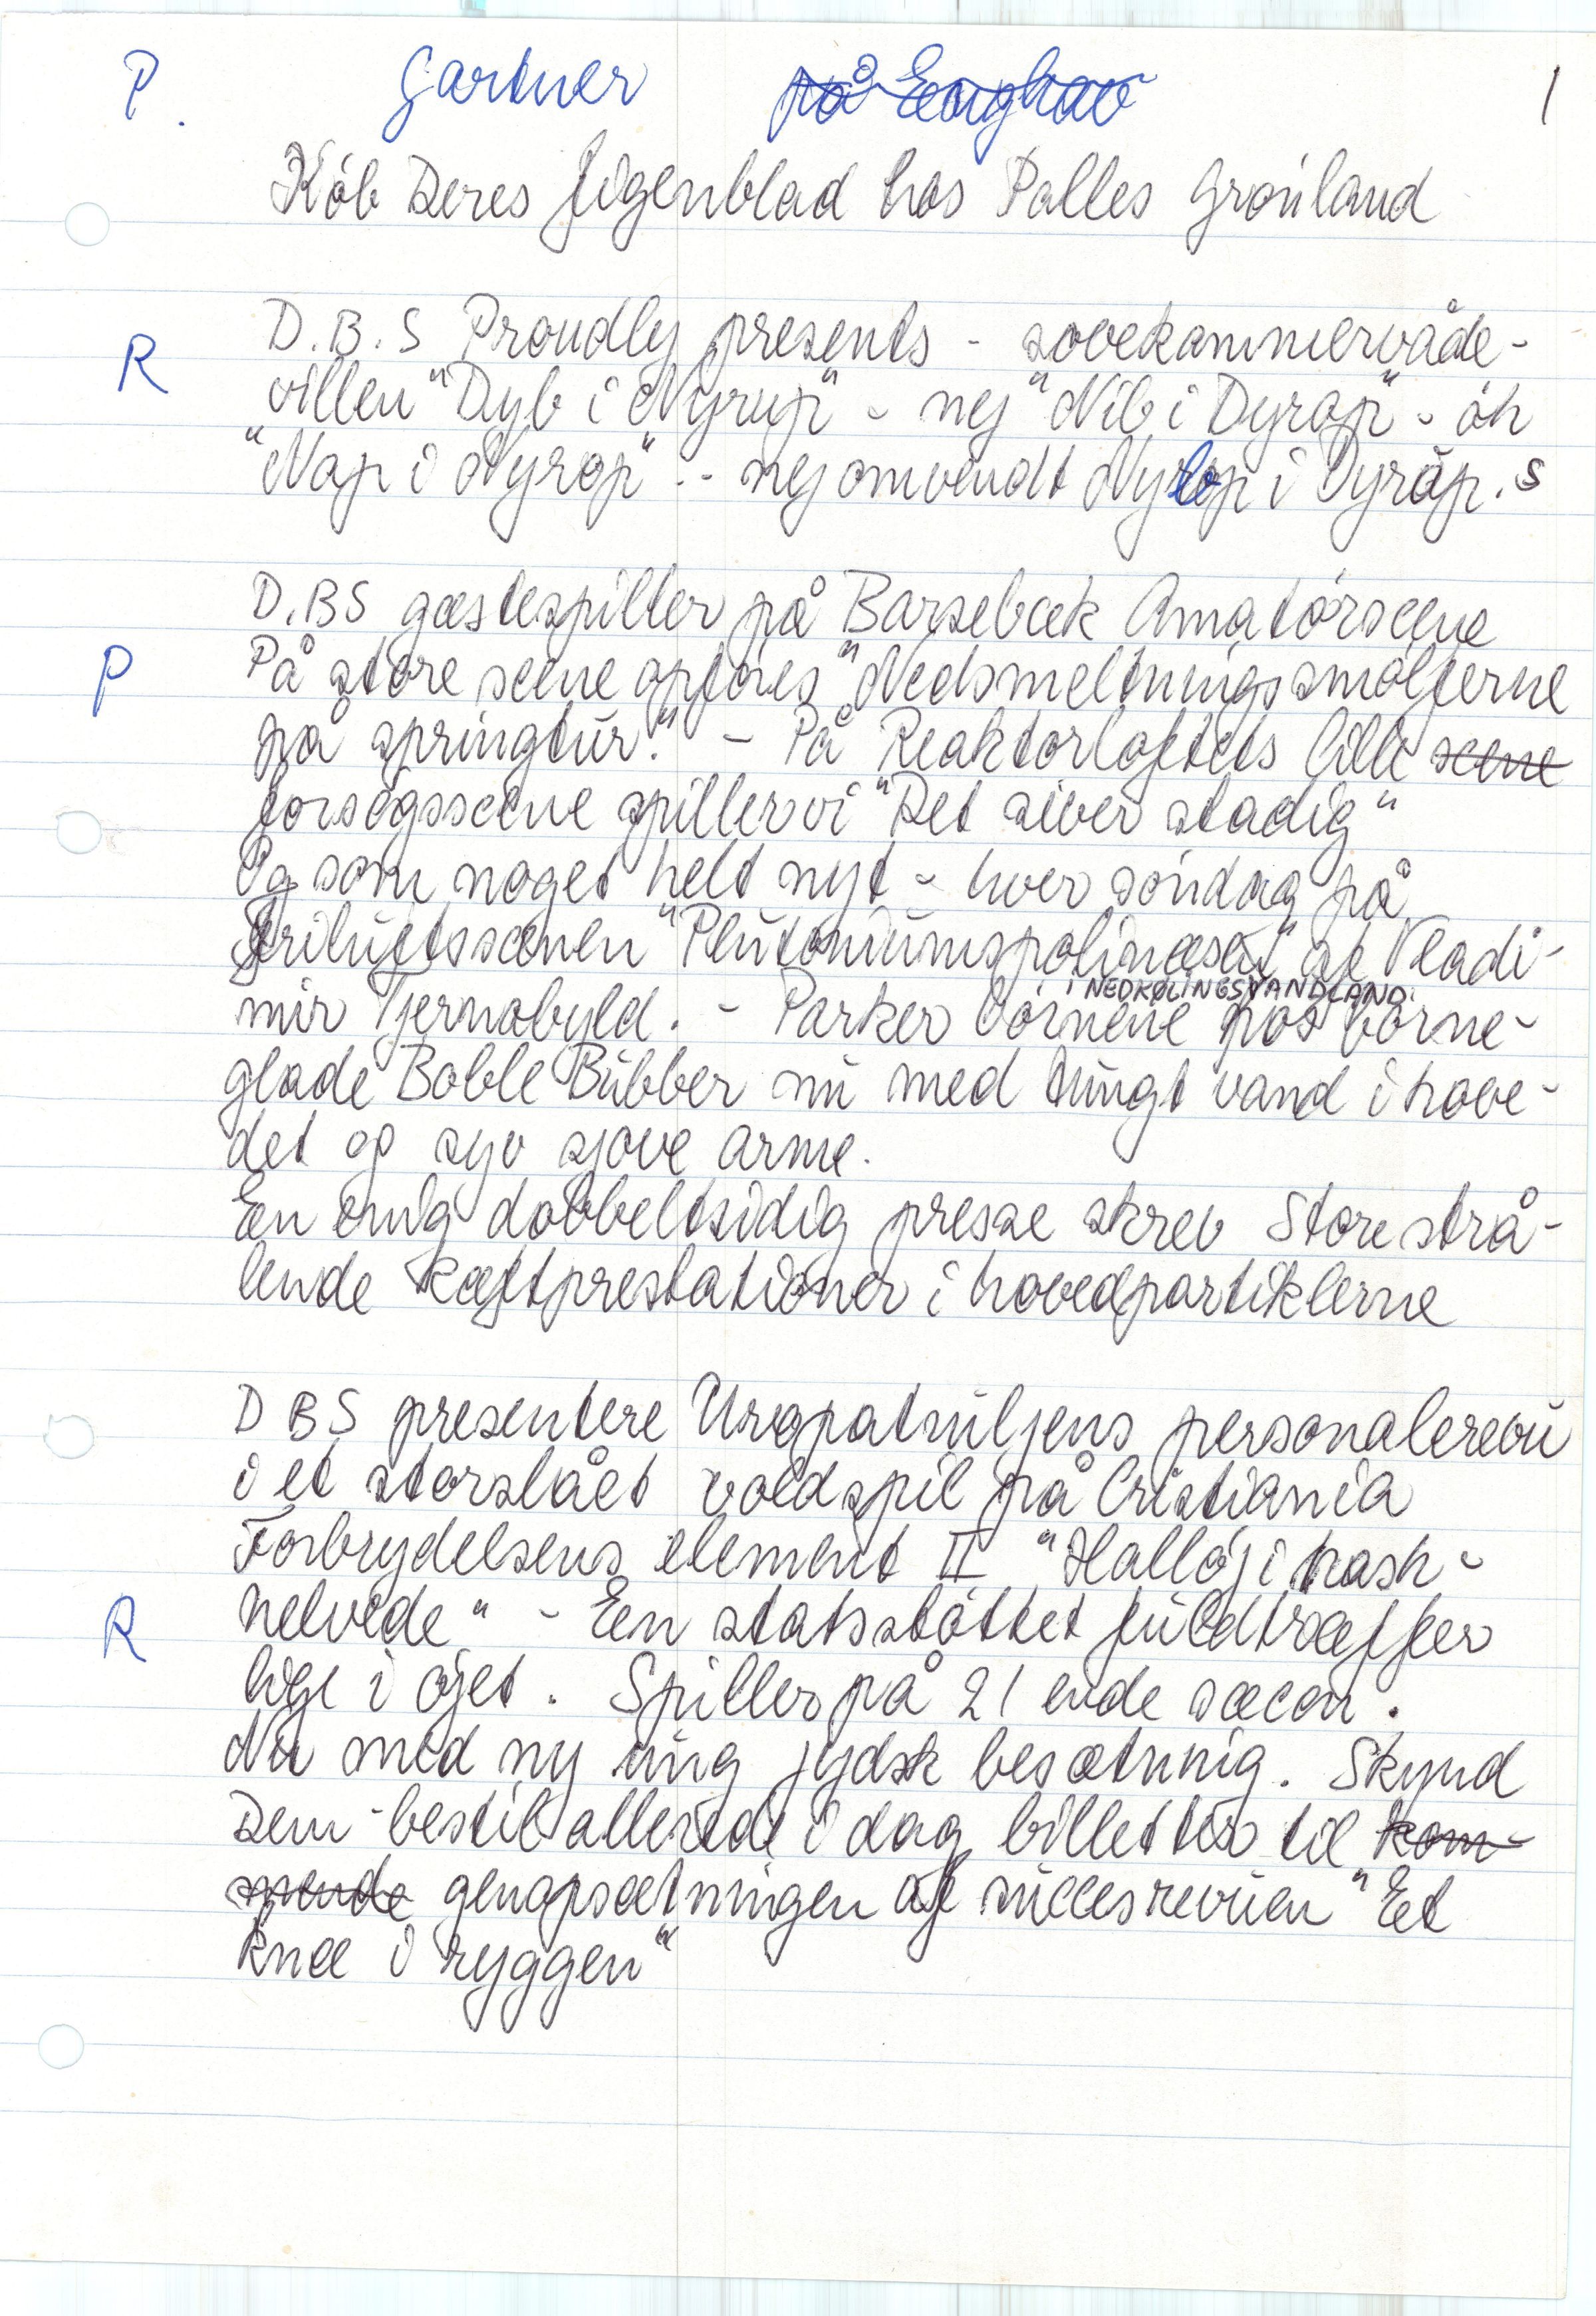 P. Gartner på Enghav 1
Køb Deres figenblad hos Palles Grønland
D.B.S Proudly presents - sovekammervåde-
R
villen "Dyb i Nyrup" - nej "Nib i Dyrop" - øh
"Nap i Nyrop" -- nej omvendt Nyløp i Dyråp.s
D.BS gæstespiller på Barsebæk Amatørscene
P
På store scene opføres "Nedsmeltningssmølferne
på springtur." - På Reaktorloftets lille scene
forsøgsscene spiller vi "Det siver stadig"
Og som noget helt nyt - hver søndag på
friluftsscenen "Plutoniumspolinæsen" af Vladi-
I NEDKØLINGSVANDLAND.
mir Tjernobyld. - Parker børnene hos børne-
glade Boble Bubber nu med tungt vand i hove-
det og syv sjove arme.
En enig dobbeltsidig presse skrev Store strå-
lende kæftprestationer i hovedpartiklerne
D B S presentere Uropatruljens personalerevu
i et storslået voldspil på Cristiania
Forbrydelsens element II "Halløj i hash-
R
helvede" - En statsstøttet fuldtræffer
lige i øjet. Spiller på 21 ende sæcon.
Nu med ny ung jydsk besætning. Skynd
Dem - bestil allerede i dag billetter til kom-
mende genopsætningen af succesrevuen "Et
knæ i ryggen"